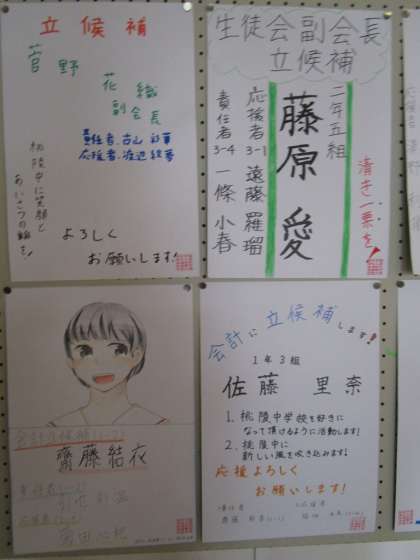 立候補
菅野
花織
副会長
責任者:古山
応援者:渡辺
桃陵中に笑顔と
あいさつの輪を!
よろしく
お願いします!
生徒会副会長
立候補
二年五組
藤原 愛
応援者3-1 遠藤 羅瑠
責任者3-4 一條 小春
清き一票を!
会計立候補
齋藤結衣
責任者
応援者
会計に立候補します!
1年3組
佐藤 里奈
1.桃陵中学校を好きに
なって頂けるように活動します!
2.桃陵中に
新しい風を吹き込みます!
応援よろしく
お願いします!
責任者
応援者